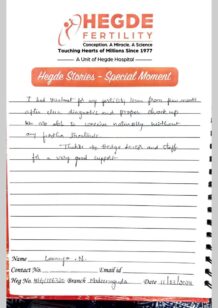 HEGDE
FERTILITY
Conception. A Miracle. A Science
Touching Hearts of Millions Since 1977
A Unit of Hegde Hospital
Hegde Stories - Special Moment
I had treatment for my fertility issue from few months
after clear diagnostic and proper check up
We are able to conceive naturally without
any further treatment.
Thanks to Hegde doctor and staff
for a very good support
Name Lavanya . N.
Contact No. Email id
Heg No. Branch Madeenaguda Date